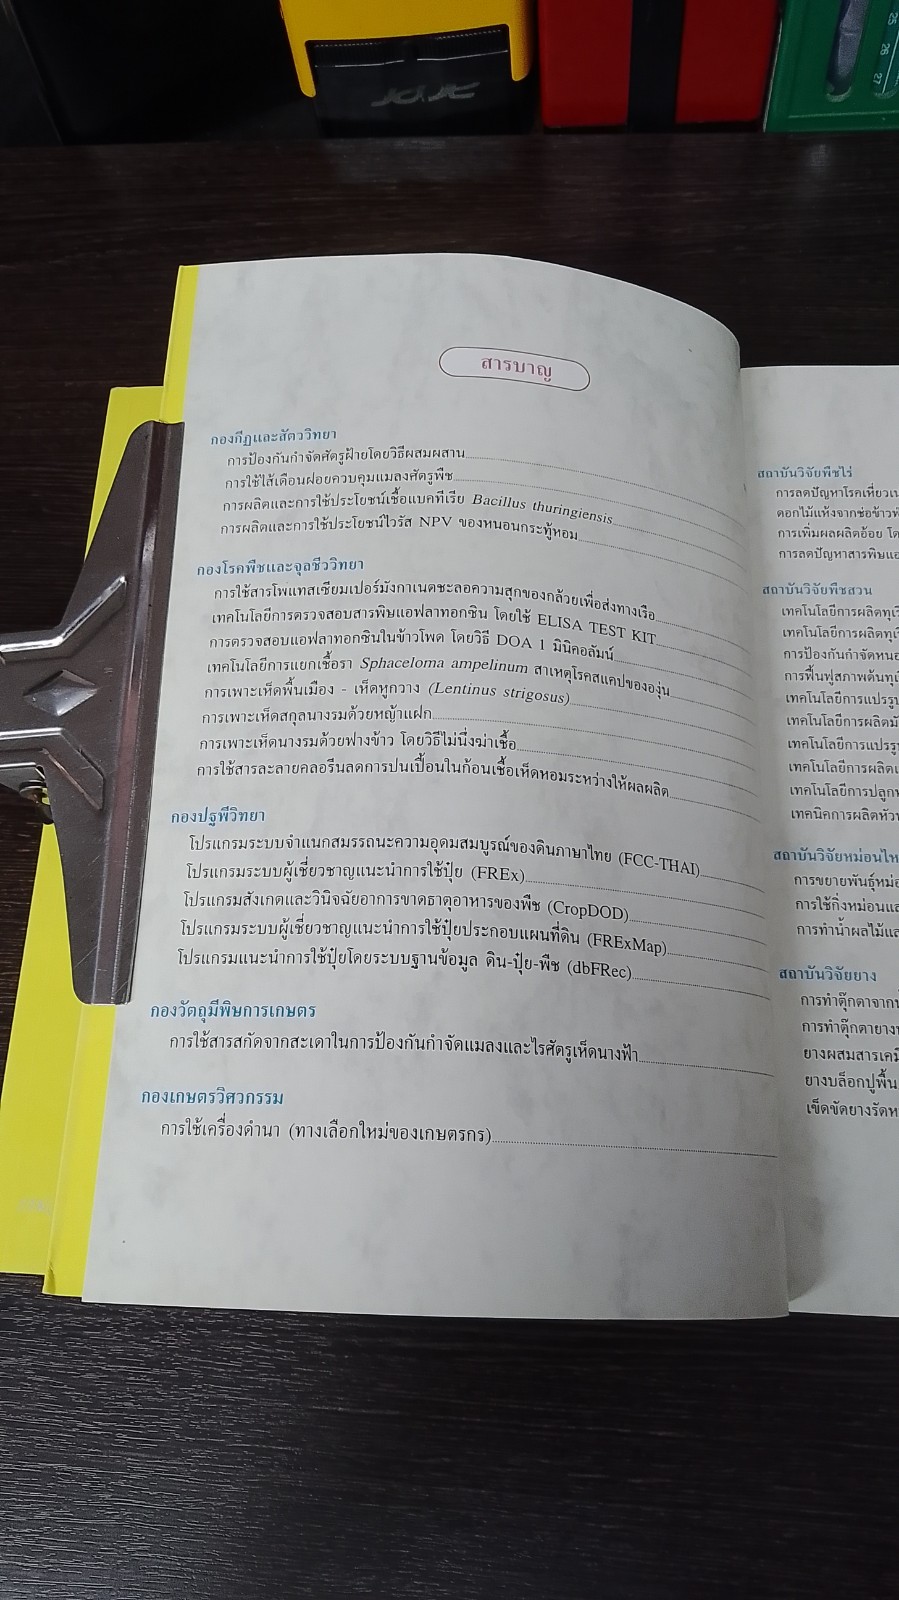 25
26
27
สารบาญ
กองกีฏและสัตววิทยา
การป้องกันกำจัดศัตรูฝ้ายโดยวิธีผสมผสาน
การใช้ไส้เดือนฝอยควบคุมแมลงศัตรูพืช
การผลิตและการใช้ประโยชน์เชื้อแบคทีเรีย Bacillus thuringiensis
การผลิตและการใช้ประโยชน์ไวรัส NPV ของหนอนกระทู้หอม
กองโรคพืชและจุลชีววิทยา
การใช้สารโพแทสเซียมเปอร์มังกาเนตชะลอความสุกของกล้วยเพื่อส่งทางเรือ
เทคโนโลยีการตรวจสอบสารพิษแอฟลาทอกซิน โดยใช้ ELISA TEST KIT
การตรวจสอบแอฟลาทอกซินในข้าวโพด โดยวิธี DOA 1 มินิคอลัมน์
เทคโนโลยีการแยกเชื้อรา Sphaceloma ampelinum สาเหตุโรคสแคปขององุ่น
การเพาะเห็ดพื้นเมือง - เห็ดหูกวาง (Lentinus strigosus)
การเพาะเห็ดสกุลนางรมด้วยหญ้าแฝก
การเพาะเห็ดนางรมด้วยฟางข้าว โดยวิธีไม่นึ่งฆ่าเชื้อ
การใช้สารละลายคลอรีนลดการปนเปื้อนในก้อนเชื้อเห็ดหอมระหว่างให้ผลผลิต
กองปฐพีวิทยา
โปรแกรมระบบจำแนกสมรรถนะความอุดมสมบูรณ์ของดินภาษาไทย (FCC-THAI)
โปรแกรมระบบผู้เชี่ยวชาญแนะนำการใช้ปุ๋ย (FREx)
โปรแกรมสังเกตและวินิจฉัยอาการขาดธาตุอาหารของพืช (CropDOD)
โปรแกรมระบบผู้เชี่ยวชาญแนะนำการใช้ปุ๋ยประกอบแผนที่ดิน (FRExMap)
โปรแกรมแนะนำการใช้ปุ๋ยโดยระบบฐานข้อมูล ดิน-ปุ๋ย-พืช (dbFRec)
กองวัตถุมีพิษการเกษตร
การใช้สารสกัดจากสะเดาในการป้องกันกำจัดแมลงและไรศัตรูเห็ดนางฟ้า
กองเกษตรวิศวกรรม
การใช้เครื่องดำนา (ทางเลือกใหม่ของเกษตรกร)
สถาบันวิจัยพืชไร่
การลดปัญหาโรคเหี่ยวเน
ดอกไม้แห้งจากช่อข้าวฟ
การเพิ่มผลผลิตอ้อย โด
การลดปัญหาสารพิษแอ
สถาบันวิจัยพืชสวน
เทคโนโลยีการผลิตทุเรี
เทคโนโลยีการผลิตทุเรี
การป้องกันกำจัดหนอ
การฟื้นฟูสภาพต้นทุเ
เทคโนโลยีการแปรรูป
เทคโนโลยีการผลิตมั
เทคโนโลยีการแปรรู
เทคโนโลยีการผลิตเ
เทคโนโลยีการปลูกพ
เทคนิคการผลิตหัวพ
สถาบันวิจัยหม่อนไห
การขยายพันธุ์หม่อ
การใช้กิ่งหม่อนแล
การทำน้ำผลไม้แล
สถาบันวิจัยยาง
การทำตุ๊กตาจากน้
การทำตุ๊กตายางพ
ยางผสมสารเคมี
ยางบล็อกปูพื้น
เข็ดขัดยางรัดห